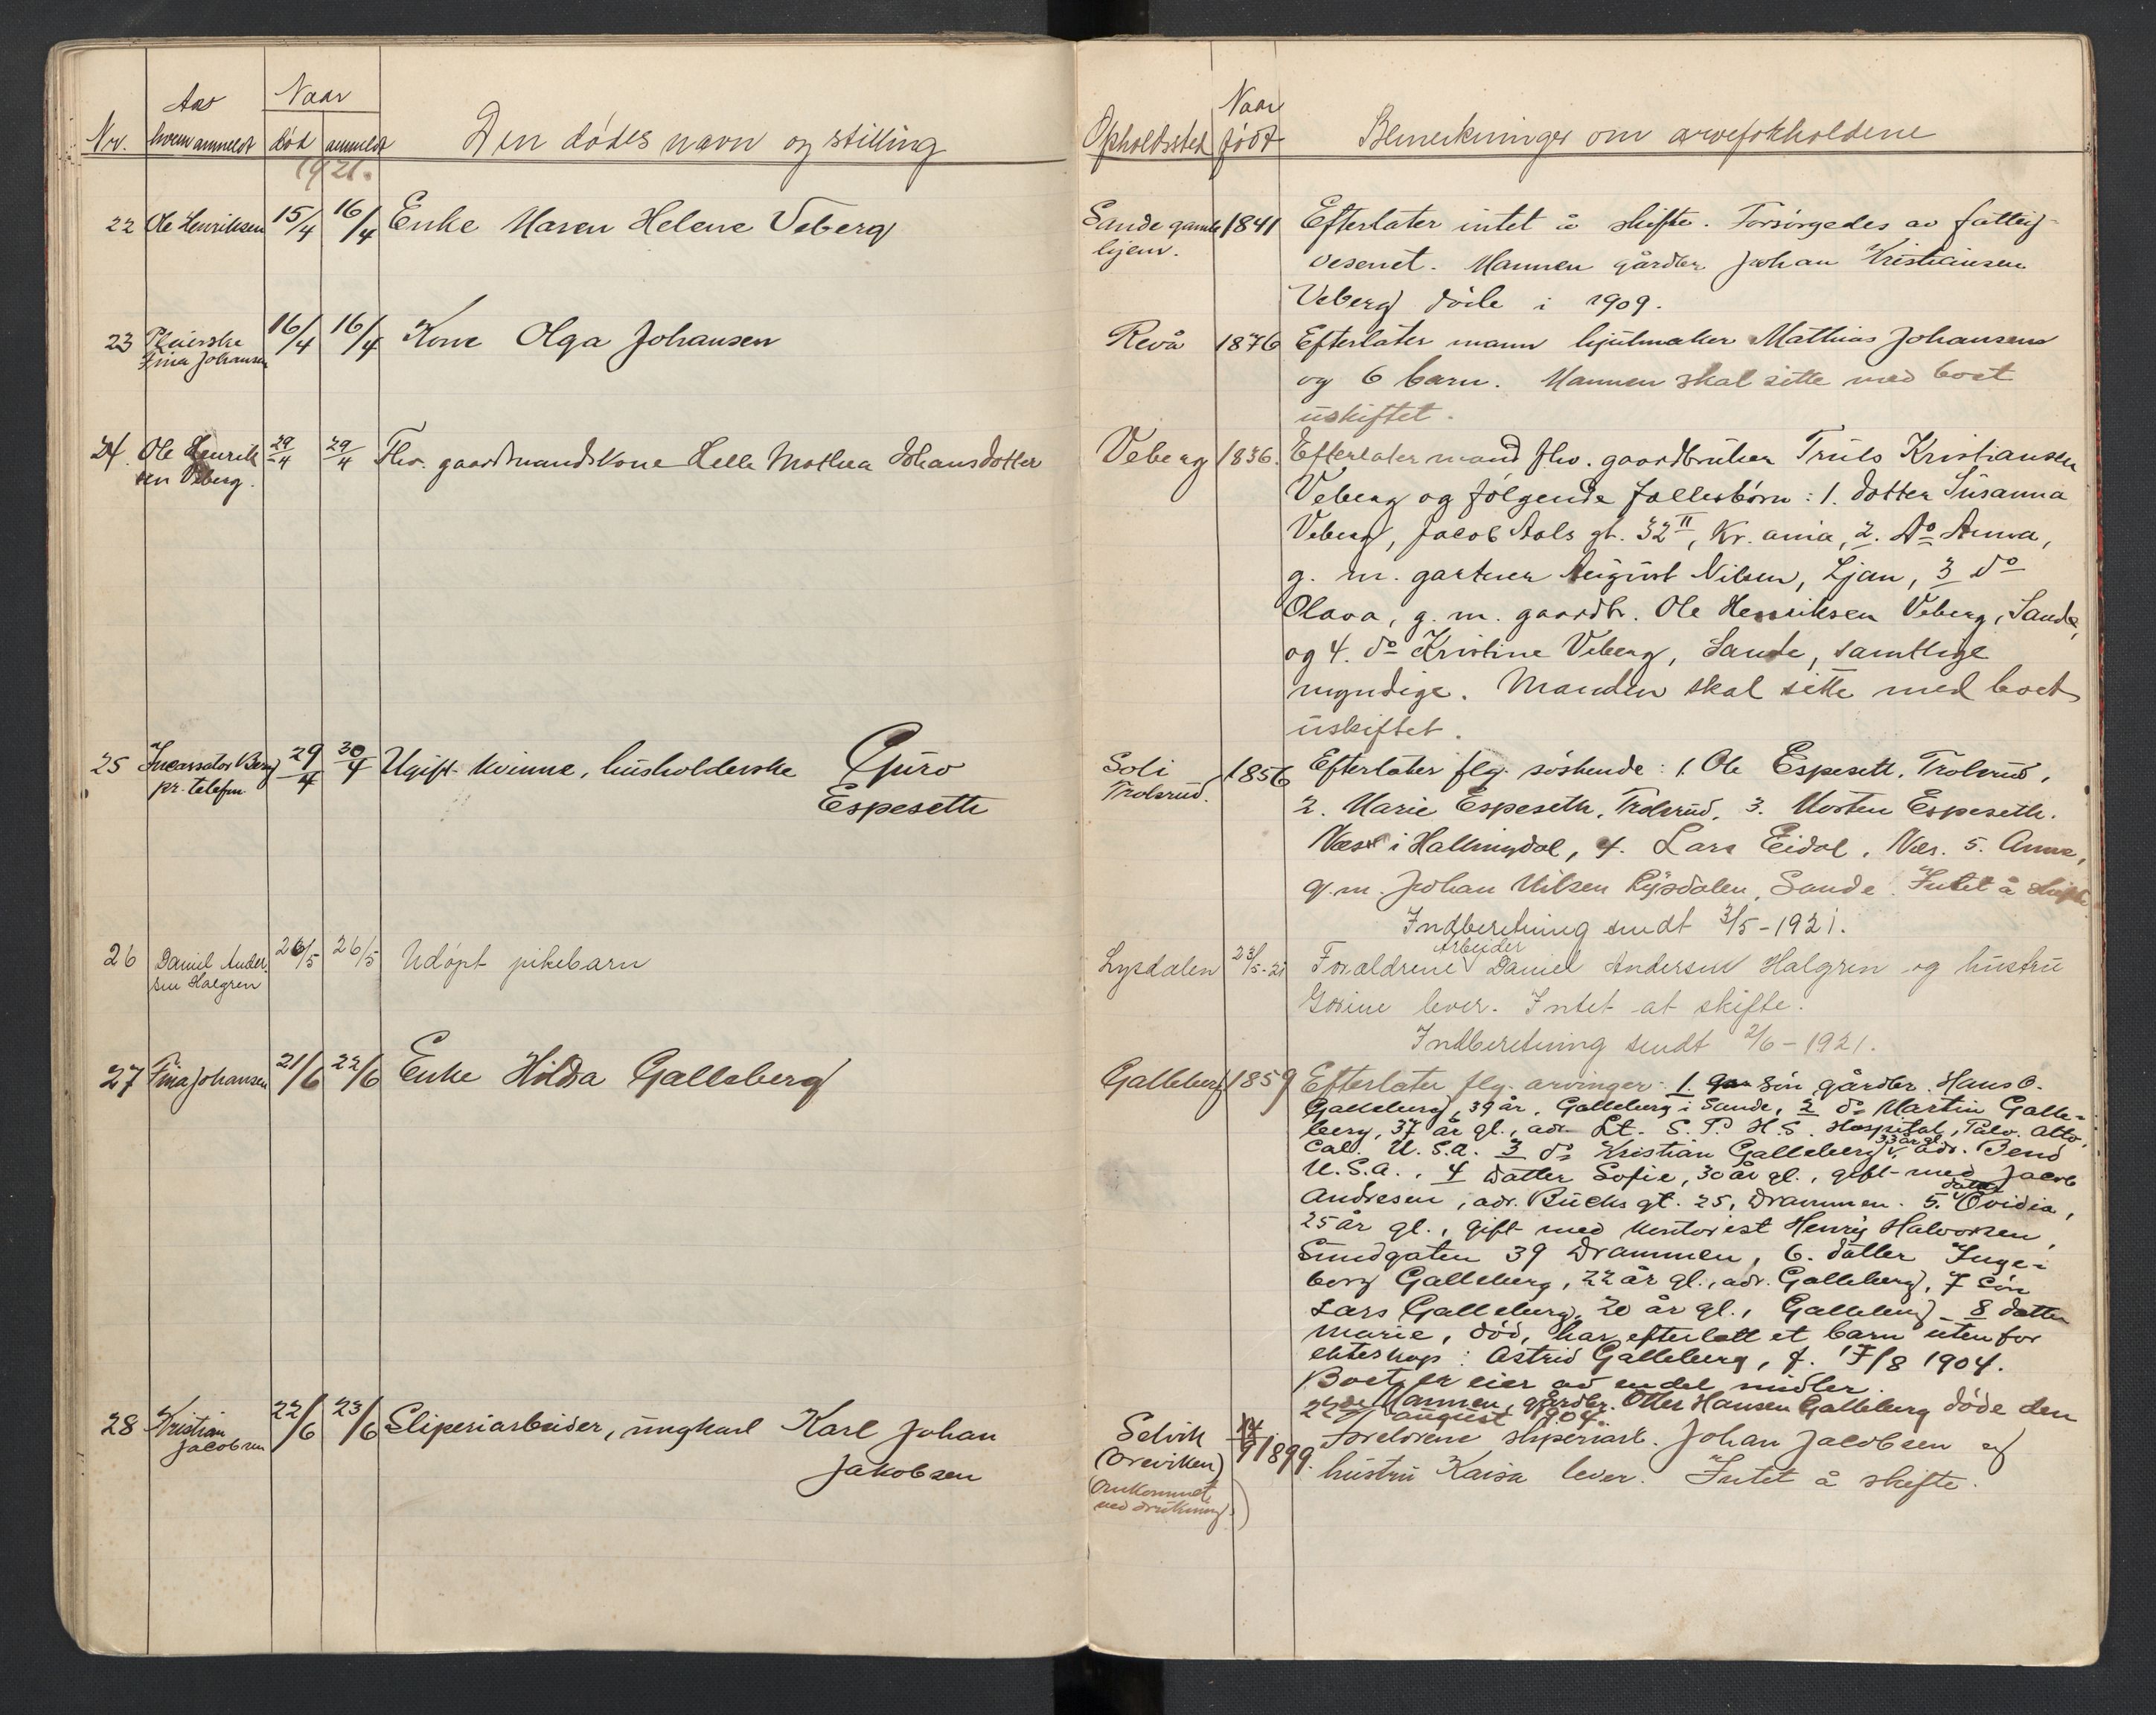 Nr. Av hvem anmeldt Naar død anmeldt Den dødes navn og stilling Opholdssted Naar født Bemerkninger om arveforholdene
1921.
22 Ole Henriksen 15/4 16/4 Enke Maren Helene Veberg Sande gamle 1841 Efterlater intet å skifte. Forsørgedes av fattig-
hjem. vesenet. Mannen gårdbr. Johan Kristiansen
Veberg døde i 1909.
23 Pleierske 16/4 16/4 Kone Olga Johansen Revå 1876 Efterlater mann hjulmaker Mathias Johansen
Fina Johansen og 6 barn. Mannen skal sitte med boet
uskiftet.
24. Ole Henrik 29/4 29/4 Fhv. gaardmandskone Helle Mathea Johansdotter Veberg 1836. Efterlater mand fhv. gaardbruker Truls Kristiansen
sen Veberg. Veberg og følgende fællesbørn: 1. dotter Susanna
Veberg, Jacob Aals gt. 32 II, Kr.ania, 2. do Anna,
g. m. gartner August Nilsen, Ljan, 3 do
Olava, g. m. gaardbr. Ole Henriksen Veberg, Sande,
og 4. do Kristine Veberg, Sande, samtlige
myndige. Manden skal sitte med boet
uskiftet.
25 Incassator Berg 29/4 30/4 Ugift kvinne, husholderske Guro Soli 1856 Efterlater flg. søskende: 1. Ole Espeseth, Trolsrud,
pr. telefon Espeseth Trolsrud. 2. Marie Espeseth, Trolsrud, 3. Morten Espeseth.
Næs i Hallingdal, 4. Lars Eidal, Næs. 5. Anna,
g. m. Johan Nilsen Lysdalen, Sande. Intet å skifte.
Indberetning sendt 3/5-1921.
26 Daniel Ander 26/5 26/5 Udøpt pikebarn Lysdalen 23/5-21 Forældrene Arbeider Daniel Andersen Halgren og hustru
sen Halgren lever. Intet at skifte.
Indberetning sendt 2/6-1921.
27 Fina Johansen 21/6 22/6 Enke Hilda Galleberg Galleberg 1859 Efterlater flg. arvinger: 1. søn gårdbr. Hans O.
Galleberg, 39 år, Galleberg i Sande, 2 do Martin Galle-
berg, 37 år gl., adr. S. P. H. S. Hospital, Palo Alto,
Cal. U.S.A. 3 do Kristian Galleberg, 33 år gl. adr. Bend
U.S.A., 4 datter Sofie, 30 år gl., gift med Jacob
Andresen, adr. Buchs gt. 25, Drammen. 5. datter Ovidia,
25 år gl., gift med kontorist Henry Halvorsen,
Sundgaten 39 Drammen, 6. datter Inge-
borg Galleberg, 22 år gl., adr. Galleberg, 7 søn
Lars Galleberg, 20 år gl., Galleberg 8 datter
Marie, død, har efterlatt et barn utenfor
ekteskap: Astrid Galleberg, f. 17/8 1904.
Boet er eier av endel midler.
Mannen, gårdbr. Otter Hansen Galleberg døde den
22de august 1904.
28 Kristian 22/6 23/6 Sliperiarbeider, ungkarl Karl Johan Selvik 14/9 1899. Foreldrene sliperiarb. Johan Jacobsen og
Jacobsen Jakobsen (Oreviken) hustru Kaisa lever. Intet å skifte.
(Omkommet
ved drukning)